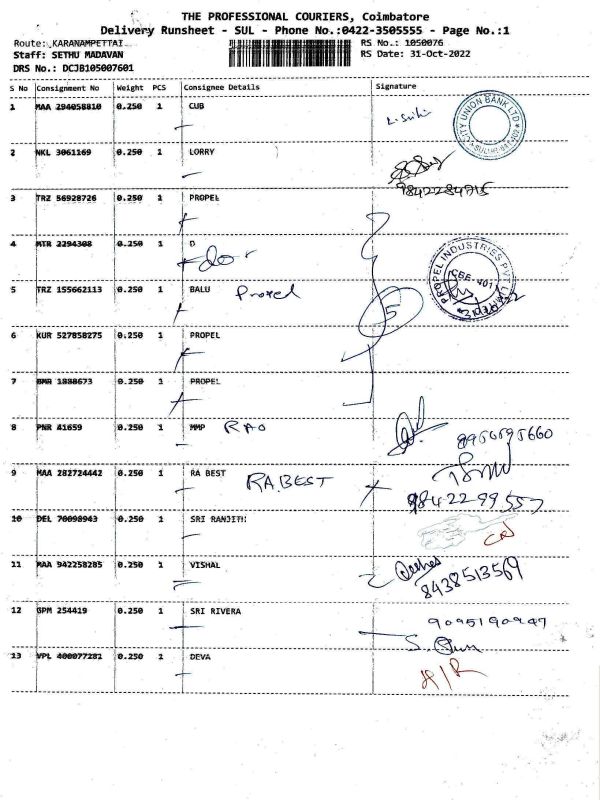 THE PROFESSIONAL COURIERS, Coimbatore
Delivery Runsheet - SUL - Phone No.:0422-3505555 - Page No.:1
Route: KARANAMPETTAI
RS No.: 1050076
Staff: SETHU MADAVAN
RS Date: 31-Oct-2022
DRS No.: DCJB105007601
S No Consignment No Weight PCS Consignee Details Signature
1 MAA 294058810 0.250 1 CUB
CITY UNION BANK LTD
2 NKL 3061169 0.250 1 LORRY
3 TRZ 56928726 0.250 1 PROPEL
4 MTR 2294308 0.250 1 D
PROPEL INDUSTRIES PVT LIMITED
5 TRZ 155662113 0.250 1 BALU Propel
5
6 KUR 527858275 0.250 1 PROPEL
7 BMR 1888673 0.250 1 PROPEL
8 PNR 41659 0.250 1 MMP RAO
9 MAA 282724442 0.250 1 RA BEST RA.BEST
10 DEL 70098943 0.250 1 SRI RANJITH
11 MAA 942258285 0.250 1 VISHAL
8438513569
12 GPM 254419 0.250 1 SRI RIVERA
9095190947
13 VPL 400077281 0.250 1 DEVA